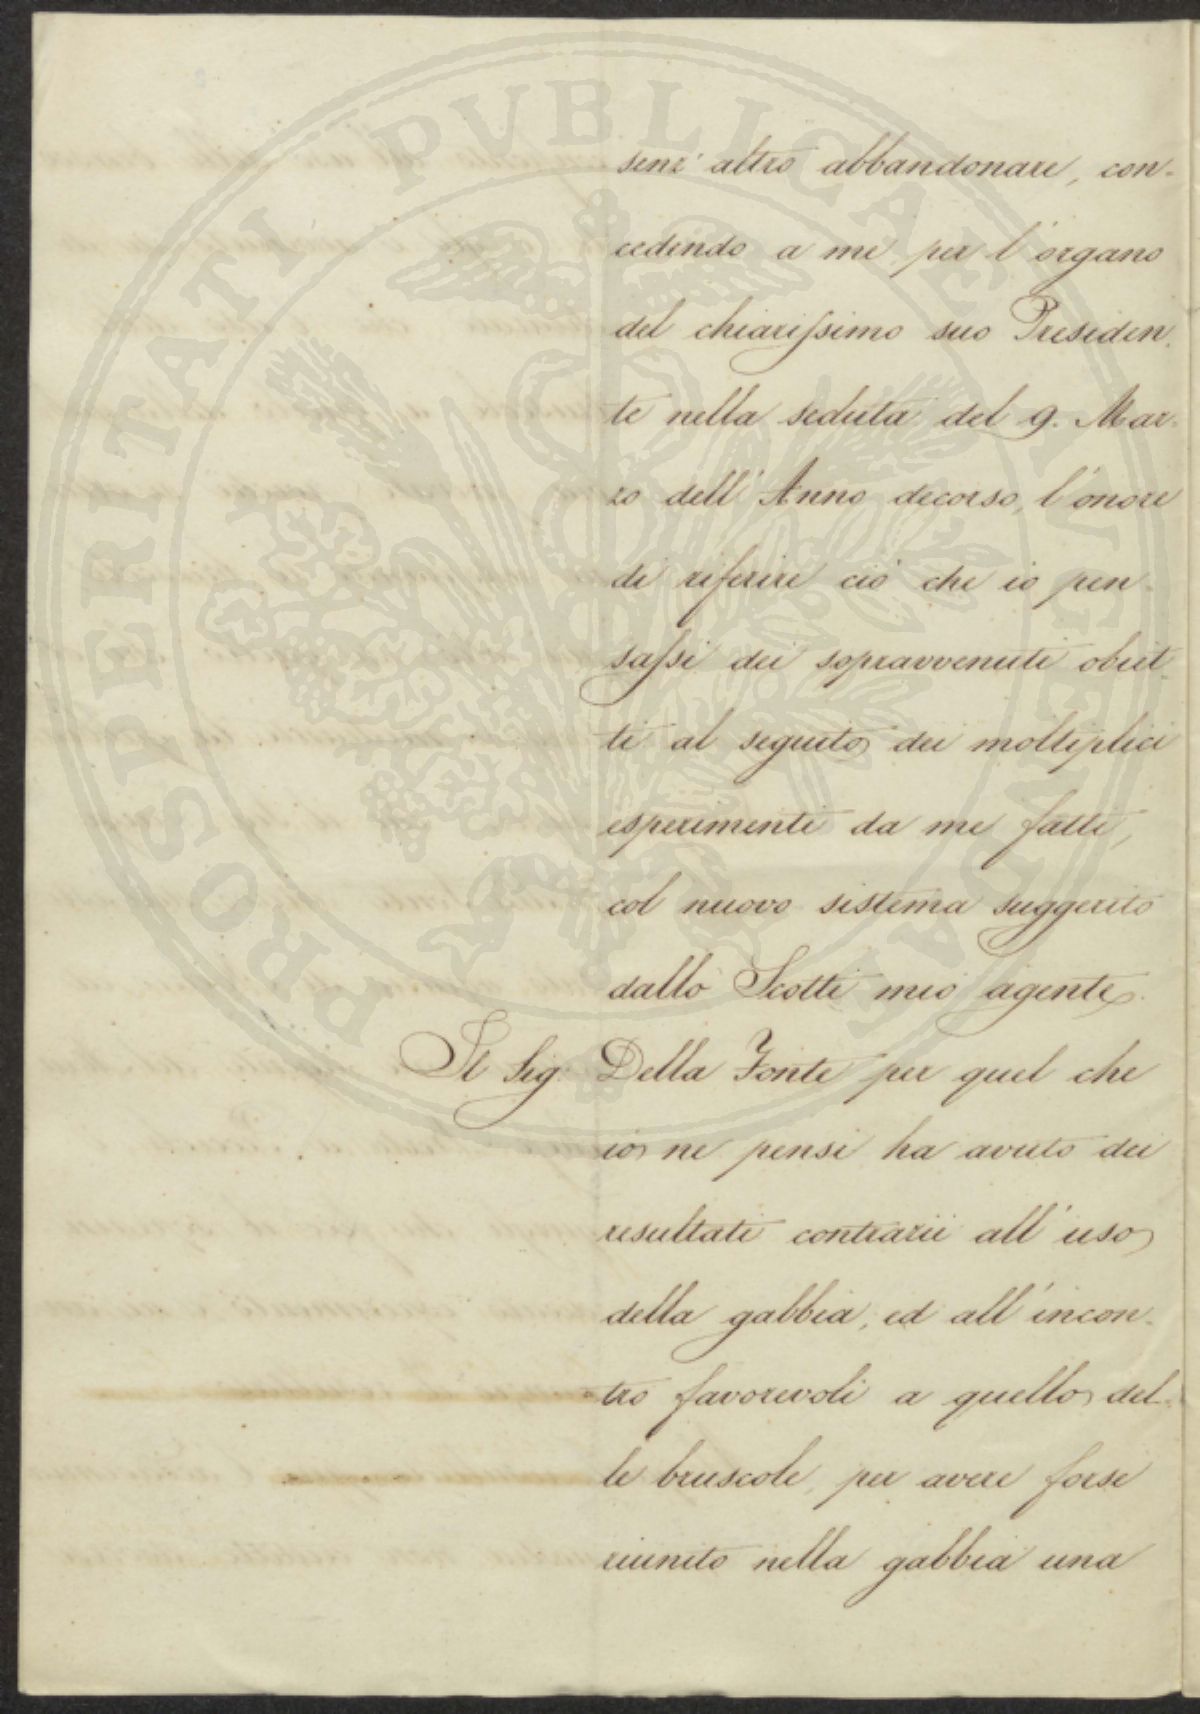 PROSPERITATI PUBLICAE AUGENDAE
senz' altro abbandonare, con-
cedendo a me per l'organo
del chiarissimo suo Presiden-
te nella seduta del 9. Mar-
zo dell' Anno decorso, l'onore
di riferire ciò che io pen-
sassi dei sopravvenuti obiet-
ti al seguito dei moltiplici
esperimenti da me fatti,
col nuovo sistema suggerito
dallo Scotti mio agente.
Il Sig. Della Fonte per quel che
io ne pensi ha avuto dei
resultati contrarii all' uso
della gabbia, ed all' incon-
tro favorevoli a quello del-
le bruscole, per avere forse
riunito nella gabbia una